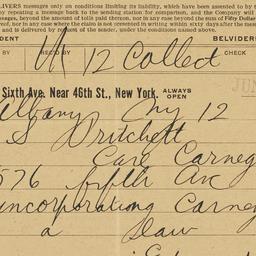 LIVERS messages only on conditions limiting its liability, which have been assented to by
by repeating a message back to the sending station for comparison, and the Company will
essages, beyond the amount of tolls paid thereon, nor in any case beyond the sum of Fifty Dollars
ror, nor in any case where the claim is not presented in writing within sixty days after the mess
and is delivered by request of the sender, under the conditions named above.
DENT BELVIDER
BY REC'D BY 12 Collect CHECK
Sixth Ave. Near 46th St., New York. ALWAYS OPEN
JUN
Albany Ny 12
S Pritchett
Care Carneg
576 fifth Ave
incorporating Carneg
a Law